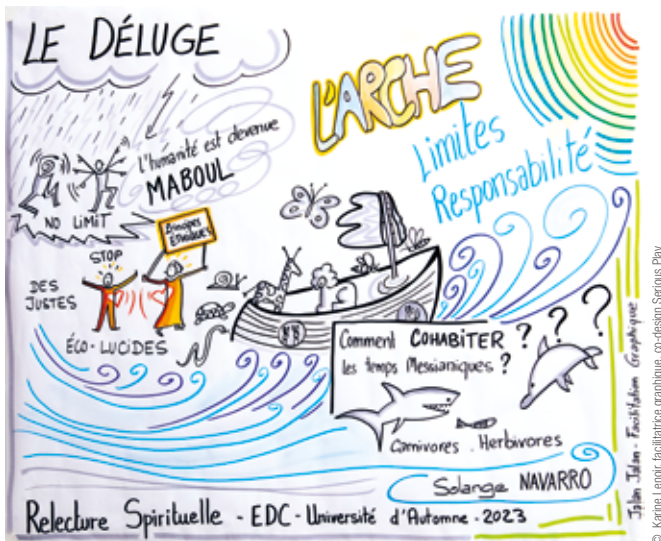 LE DÉLUGE
L'humanité est devenue
MABOUL
NO LIMIT
L'ARCHE
Limites
Responsabilité
Principes
STOP
DES
JUSTES
ÉCO-LUCIDES
Comment COHABITER ? ? ?
les temps Messianiques ?
Carnivores . Herbivores
Solange NAVARRO
Relecture Spirituelle - EDC - Université d'Automne - 2023
Jalan Jalan - Facilitation Graphique
© Karine Lenoir, facilitatrice graphique, co-design Serious Play